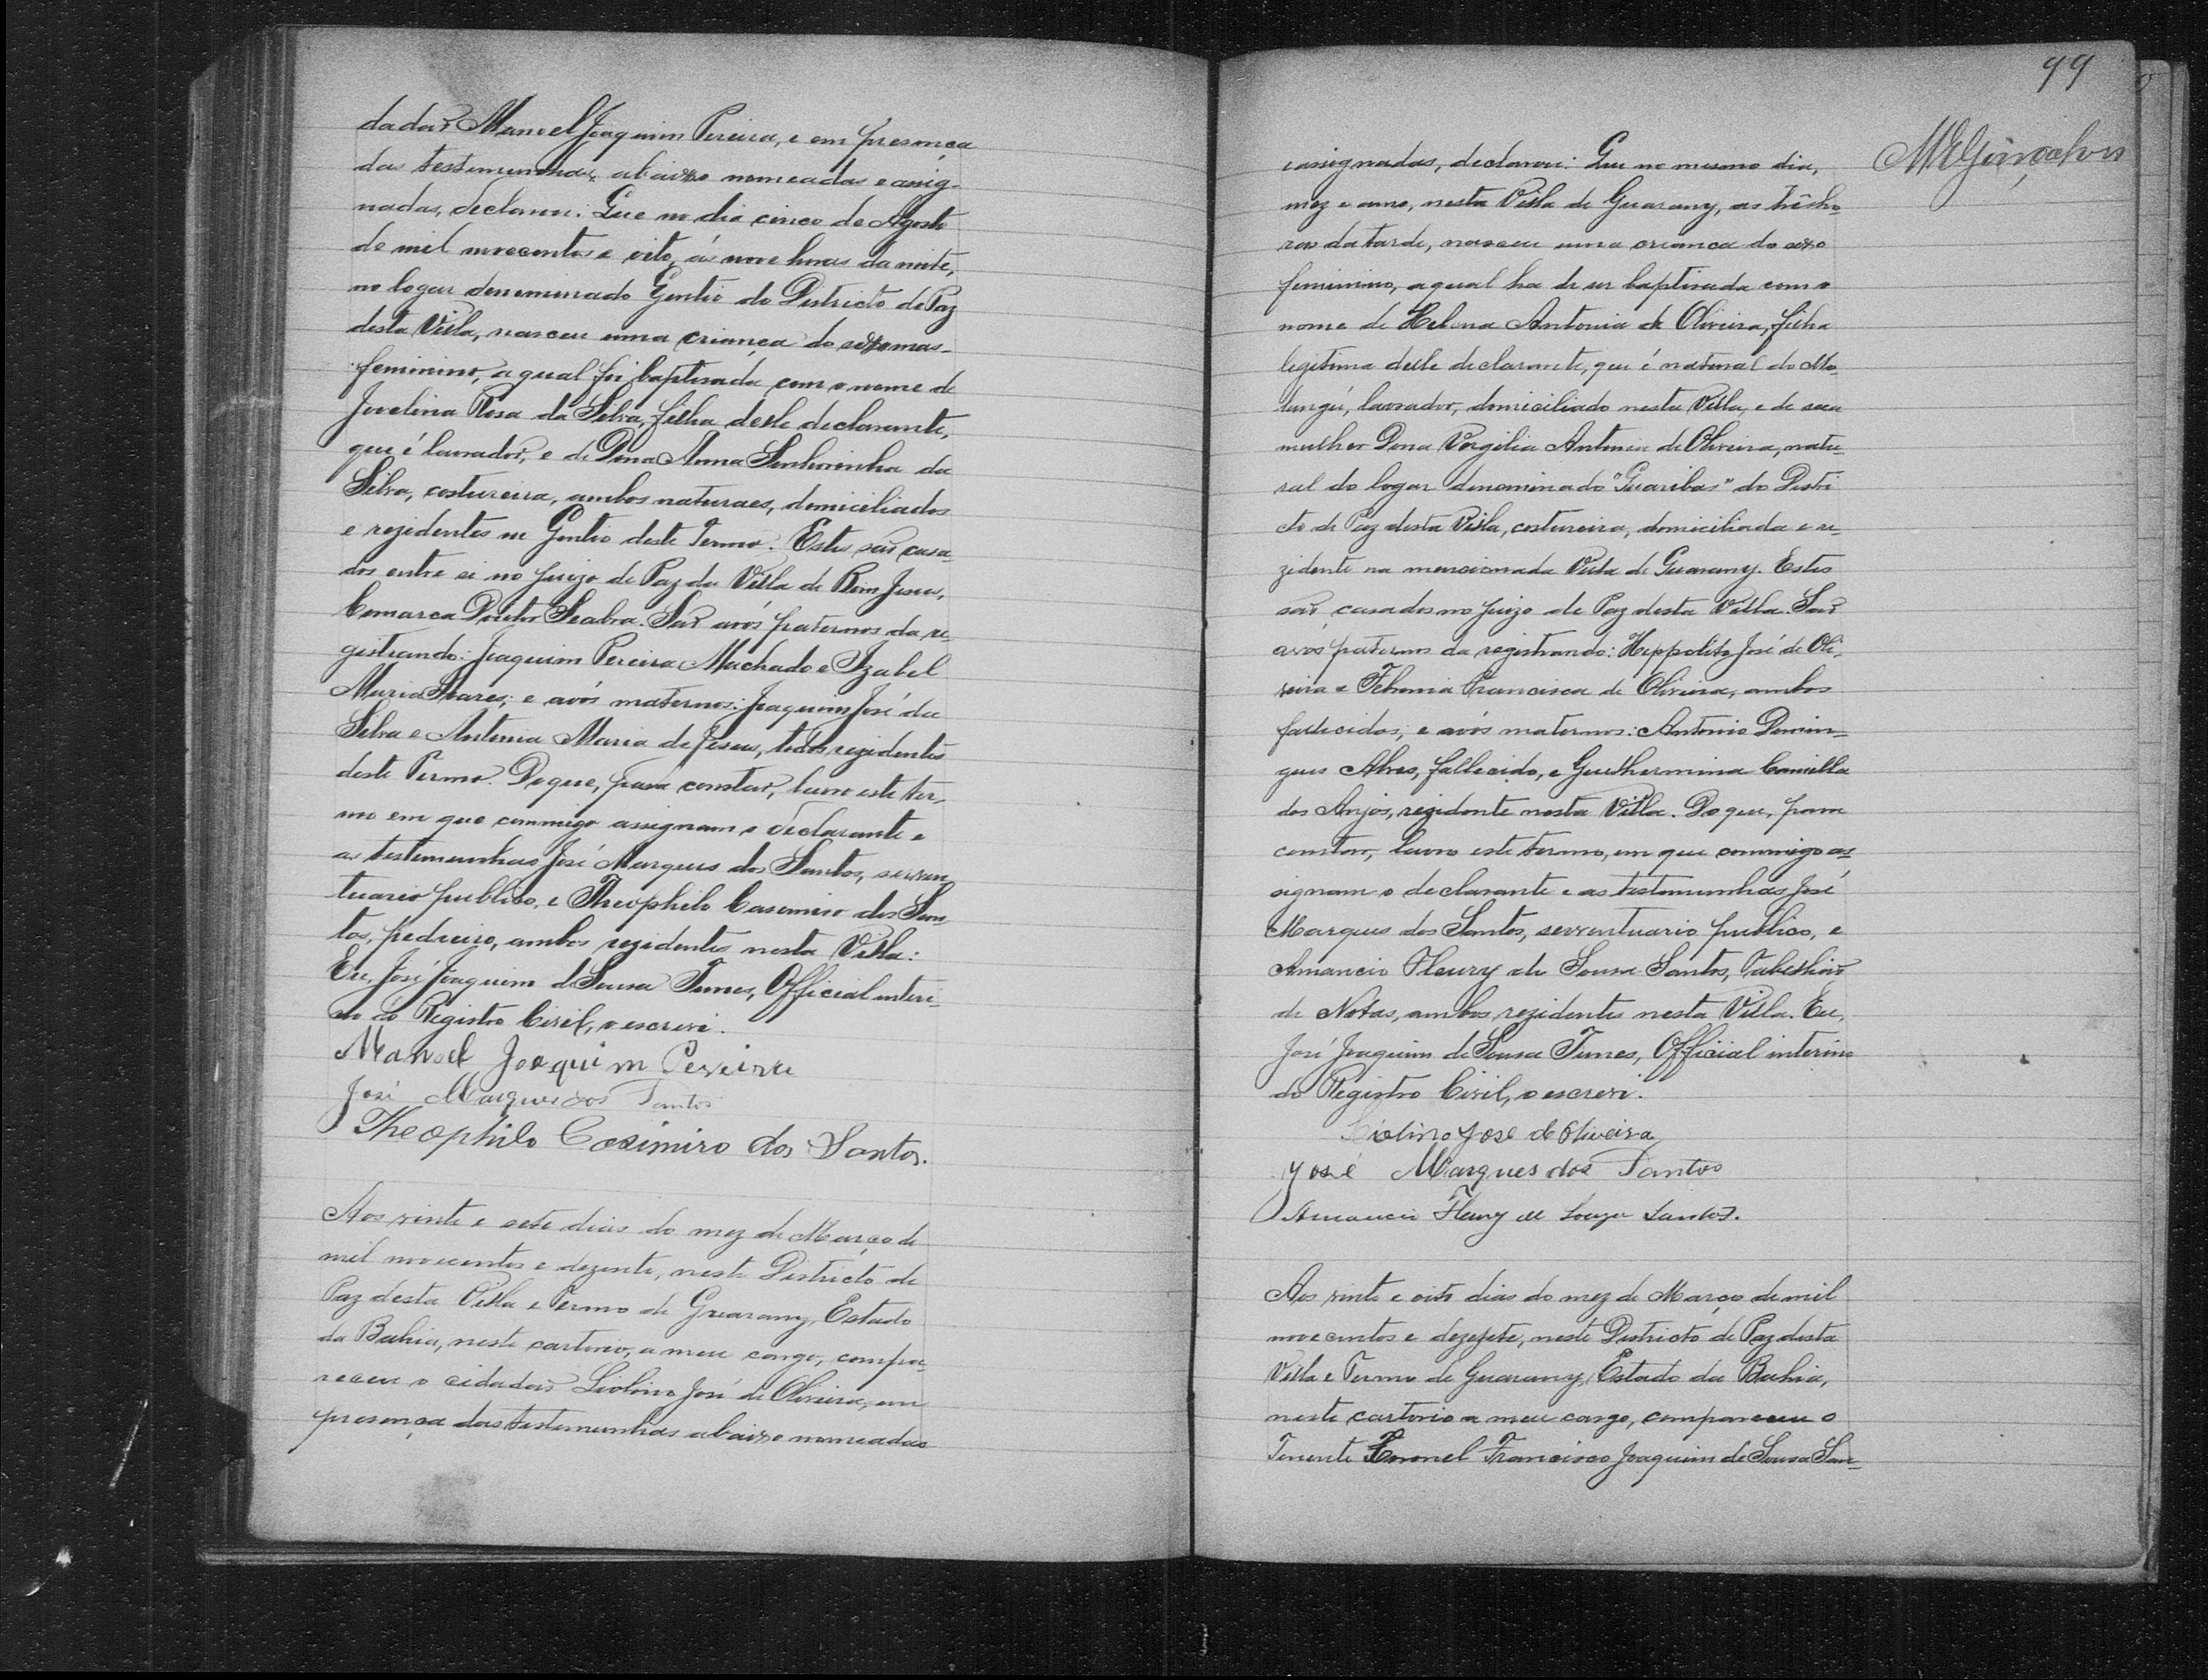 dadão Manoel Joaquim Pereira, e em presença
das testemunhas abaixo nomeadas e assig-
nadas, declarou: Que no dia cinco de Agosto
de mil novecentos e oito, ás nove horas da noite,
no logar denominado Gentio do Districto de Paz
desta Villa, nasceu uma criança do sexo mas-
feminino, a qual foi baptisada com o nome de
Jovelina Rosa da Silva, filha delle declarante,
que é lavrador, e de Dona Anna Senhorinha da
Silva, costureira, ambos naturaes, domiciliados
e rezidentes no Gentio deste Termo. Estes são casa-
dos entre si no Juizo de Paz da Villa de Bom Jesus,
Comarca Doutor Seabra. São avós paternos da re-
gistrando: Joaquim Pereira Machado e Izabel
Maria Soares; e avós maternos: Joaquim José da
Silva e Antonia Maria de Jesus, todos rezidentes
deste Termo. Do que, para constar, lavro este ter-
mo em que commigo assignam o declarante e
as testemunhas José Marques dos Santos, serven-
tuario publico, e Theophilo Casemiro dos San-
tos, pedreiro, ambos rezidentes nesta Villa:
Eu, José Joaquim de Sousa Tunes, Official interi-
no do Registro Civil, o escrevi.
Manoel Joaquim Pereira
José Marques dos Santos
Theophilo Casimiro dos Santos.
Aos vinte e sete dias do mez de Março de
mil novecentos e dezesete, neste Districto de
Paz desta Villa e Termo de Guarany, Estado
da Bahia, neste cartorio, a meu cargo, compa-
receu o cidadão Liolino José de Oliveira, em
presença das testemunhas abaixo nomeadas
99
e assignadas, declarou: Que no mesmo dia,
mez e anno, nesta Villa de Guarany, as três ho-
ras da tarde, nasceu uma criança do sexo
feminino, a qual ha de ser baptisada com o
nome de Helena Antonia de Oliveira, filha
legitima delle declarante, que é natural do Mo-
lungú, lavrador, domiciliado nesta Villa, e de sua
mulher Dona Virgilia Antonia de Oliveira, natu-
ral do logar denominado "Guaribas" do Distri-
cto de Paz desta Villa, costureira, domiciliada e re-
zidente na mencionada Villa de Guarany. Estes
são casados no Juizo de Paz desta Villa. São
avós paternos da registrando: Hippolito José de Oli-
veira e Francisca de Oliveira, ambos
fallecidos; e avós maternos: Antonio Domin-
gues Alves, fallecido, e Guilhermina Camilla
dos Anjos, rezidente nesta Villa. Do que, para
constar, lavro este termo, em que commigo as-
signam o declarante e as testemunhas José
Marques dos Santos, serventuario publico, e
Amancio Fleury de Sousa Santos, Tabellião
de Notas, ambos rezidentes nesta Villa. Eu,
José Joaquim de Sousa Tunes, Official interino
do Registro Civil, o escrevi.
Liolino José de Oliveira
José Marques dos Santos
Amancio Fleury de Souza Santos.
Aos vinte e oito dias do mez de Março de mil
novecentos e dezesete, neste Districto de Paz desta
Villa e Termo de Guarany, Estado da Bahia,
neste cartorio a meu cargo, compareceu o
Tenente Coronel Francisco Joaquim de Sousa San-